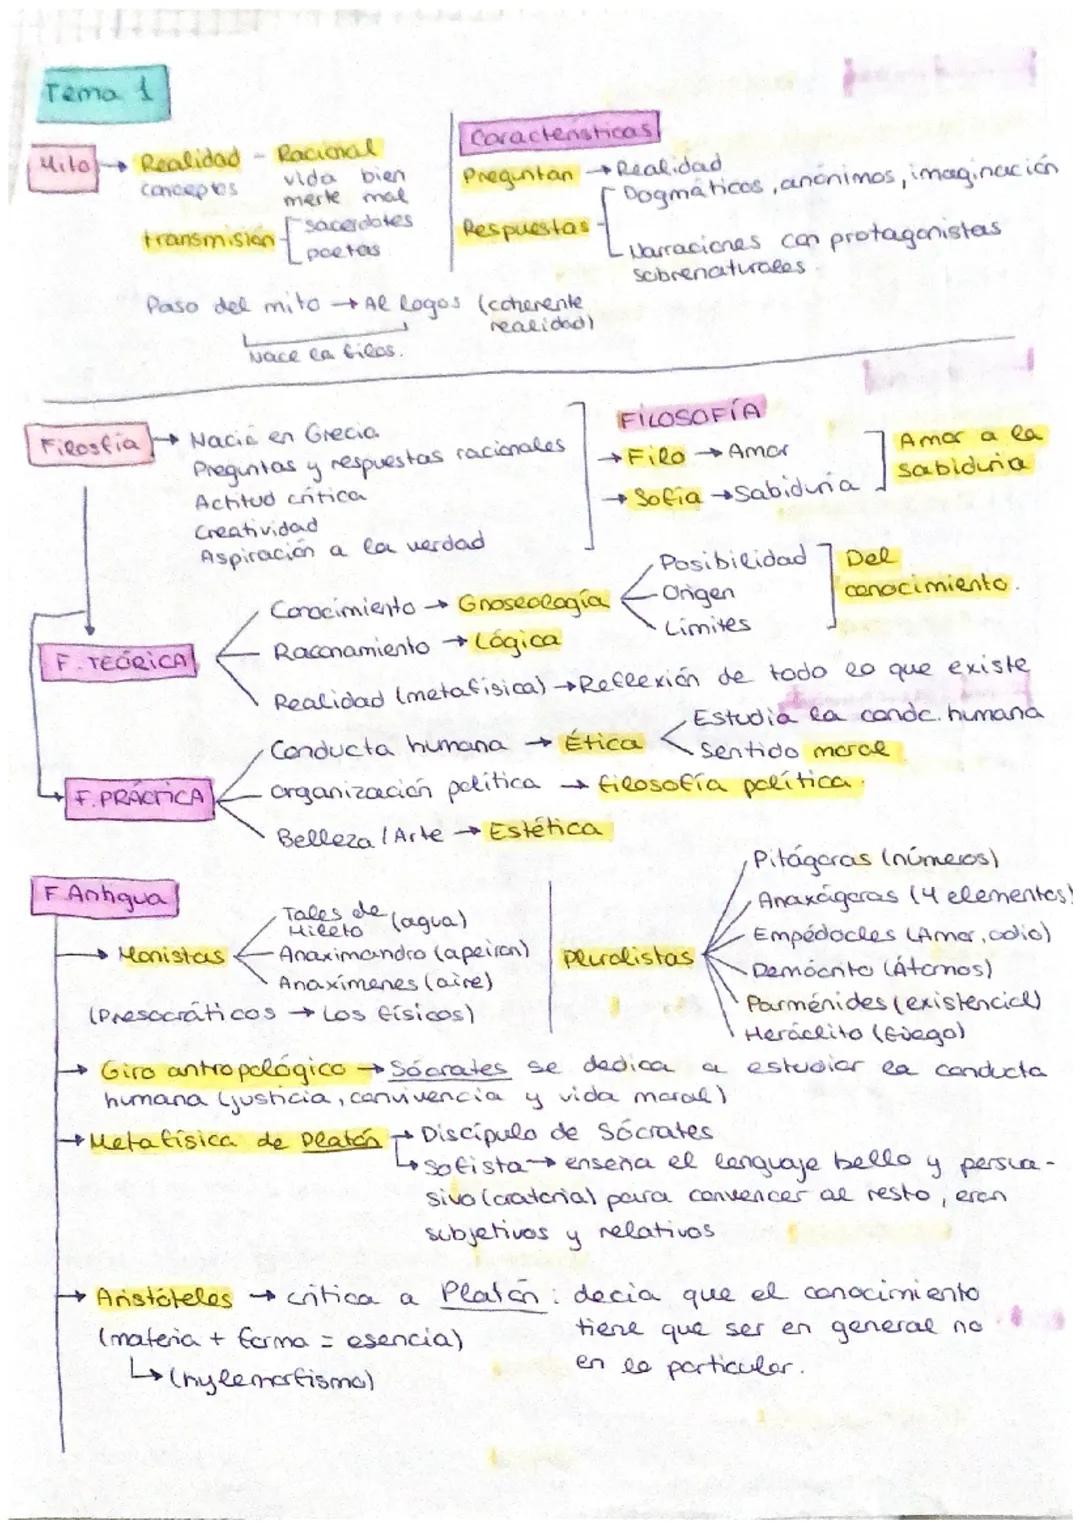 Tema 1
Mito → Realidad - Racional
conceptos vida bien
merte mal
transmisión sacerdotes
poetas
Características
Preguntan → Realidad
Respuestas Dogmáticos, anónimos, imaginación
Narraciones con protagonistas
sobrenaturales
Paso del mito → Al logos (coherente
realidad)
Nace la filos.
Filosfía → Nació en Grecia
Preguntas y respuestas racionales
Actitud crítica
Creatividad
Aspiración a la verdad
FILOSOFÍA
→ Filo → Amor
→ Sofía → Sabiduría
Amor a la
sabiduria
F. TEÓRICA
Conocimiento → Gnoseología
Posibilidad
Origen
Límites
Del
conocimiento.
Raconamiento → Lógica
Realidad (metafísica) → Reflexión de todo lo que existe
F. PRÁCTICA
Conducta humana → Ética
Estudia la condc. humana
Sentido moral
organización política → filosofía política.
Belleza / Arte → Estética
F. Antigua
→ Monistas
Tales de
Mileto (agua)
Anaximandro (apeiron)
Anaxímenes (aire)
(Presocráticos → Los físicos)
pluralistas
Pitágoras (números)
Anaxágoras (4 elementos)
Empédocles (Amor, odio)
Demócrito (Átomos)
Parménides (existencial)
Heráclito (fuego)
→ Giro antropológico → Sócrates se dedica a estudiar la conducta
humana (justicia, convivencia y vida moral)
→ Metafísica de Platón → Discípulo de Sócrates
→ Sofista → enseña el lenguaje bello y persua-
sivo (oratoria) para convencer al resto, eran
subjetivos y relativos
→ Aristóteles → crítica a Platón: decia que el conocimiento
(materia + forma = esencia) tiene que ser en general no
→ (hylemorfismo) en lo particular.